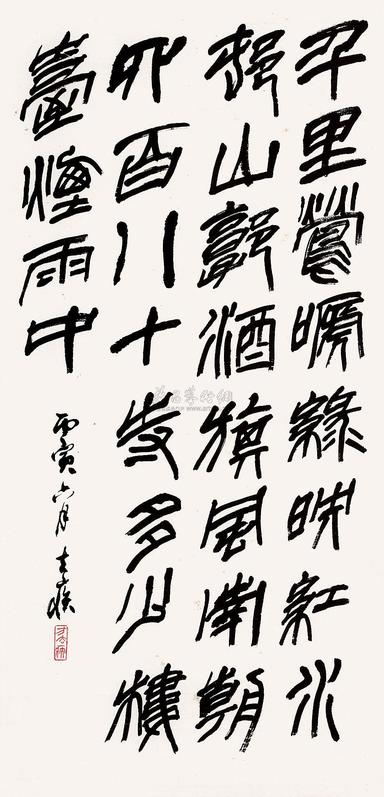 千里鶯嗁綠映紅水
邨山郭酒旗風南朝
四百八十寺多少樓
臺煙雨中
丙寅六月去疾